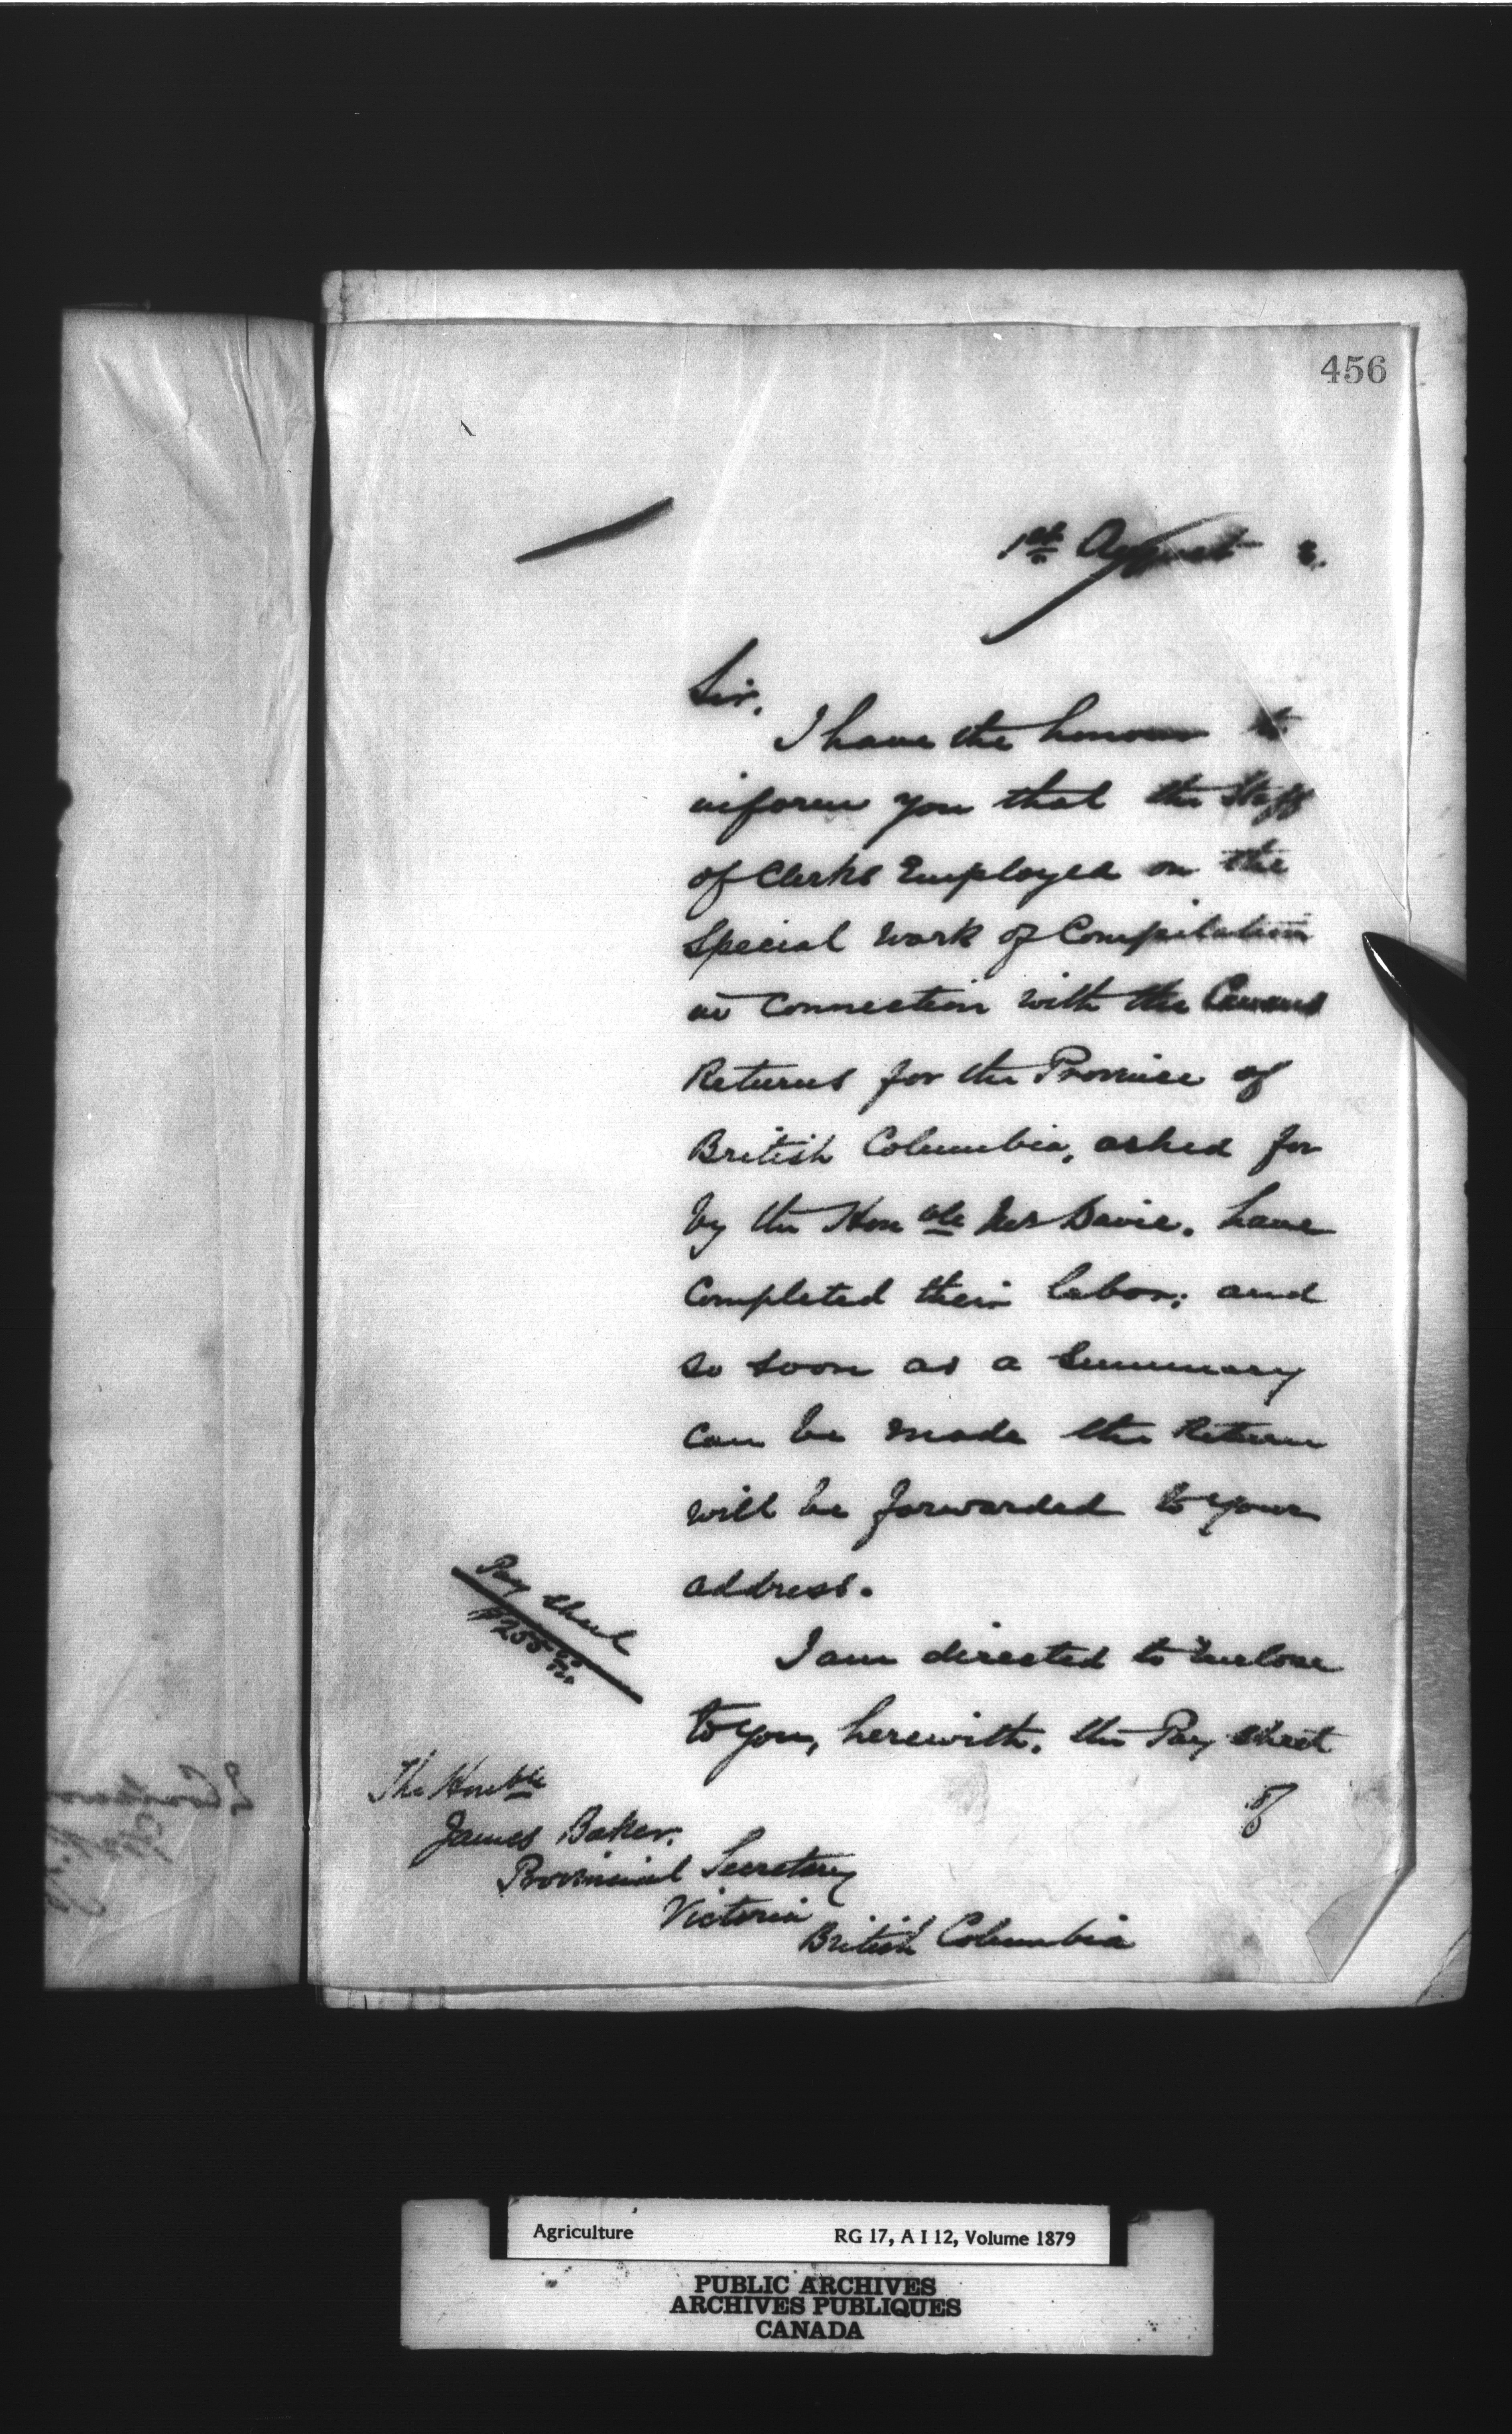 456
1st August 2.
Sir,
I have the honour to
inform you that the Staff
of Clerks Employed on the
Special Work of Compilation
in Connection with the Census
Returns for the Province of
British Columbia, asked for
by the Honble Mr Davie. have
Completed their labor; and
so soon as a Summary
can be made the Return
will be forwarded to your
address.
Pay Sheet
$255
I am directed to Enclose
to you, herewith, the Pay Sheet
of
The Honble
James Baker.
Provincial Secretary
Victoria
British Columbia
Agriculture RG 17, A I 12, Volume 1879
PUBLIC ARCHIVES
ARCHIVES PUBLIQUES
CANADA